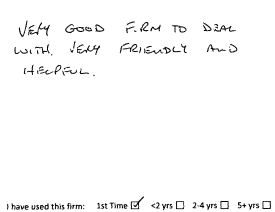 VERY GOOD FIRM TO DEAL
WITH. VERY FRIENDLY AND
HELPFUL.
I have used this firm: 1st Time ☑ <2 yrs ☐ 2-4 yrs ☐ 5+ yrs ☐